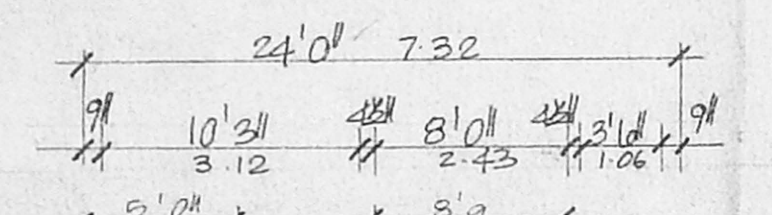 24'0" 7.32
9" 10'3" 4½" 8'0" 4½" 3'6" 9"
3.12 2.43 1.06
5'0" 8'9